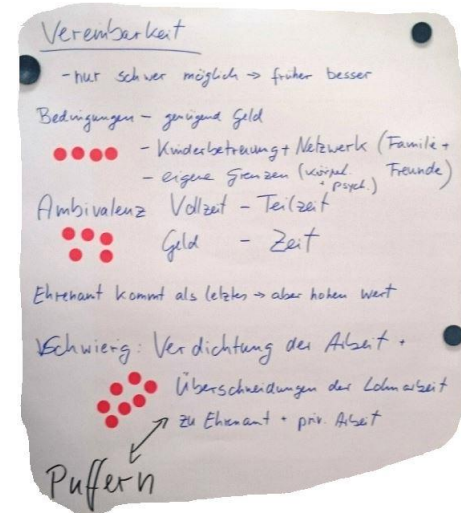 Vereinbarkeit
- nur schwer möglich → früher besser
Bedingungen - genügend Geld
- Kinderbetreuung + Netzwerk (Familie + Freunde)
- eigene Grenzen (körperl. + psych.)
Ambivalenz Vollzeit - Teilzeit
Geld - Zeit
Ehrenamt kommt als letztes → aber hohen Wert
Schwierig: Verdichtung der Arbeit +
Überschneidungen der Lohnarbeit
zu Ehrenamt + priv. Arbeit
Puffern